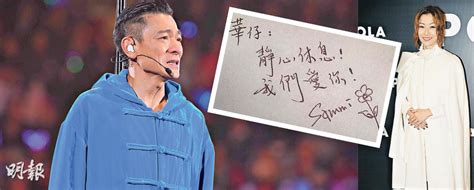 華仔：
靜心休息！
我們愛你！
Sammi
明報
OLA